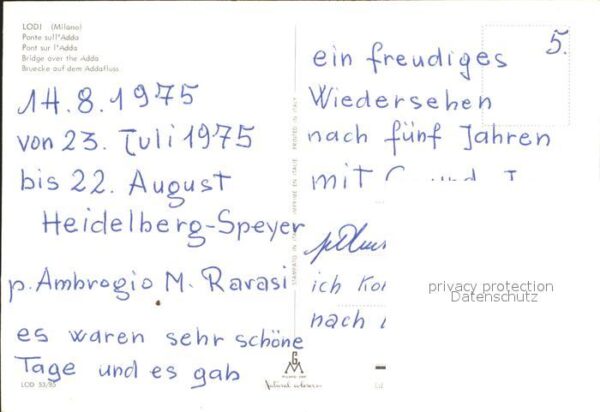 LODI (Milano)
Ponte sull'Adda
Pont sur l'Adda
Bridge over the Adda
Bruecke auf dem Addafluss
14.8.1975
von 23. Juli 1975
bis 22. August
Heidelberg-Speyer
p. Ambrogio M. Ravasi
es waren sehr schöne
Tage und es gab
LOD 53/85
STAMPATO IN ITALIA IMPRIMÉ EN ITALIE PRINTED IN ITALY
GM
5.
ein freudiges
Wiedersehen
nach fünf Jahren
mit
ich
nach
privacy protection
Datenschutz